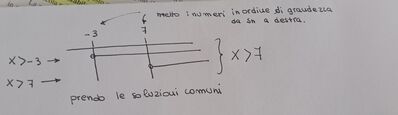 metto i numeri in ordine di grandezza
da sn a destra.
-3 7
x>-3 →
x>7 →
x>7
prendo le soluzioni comuni